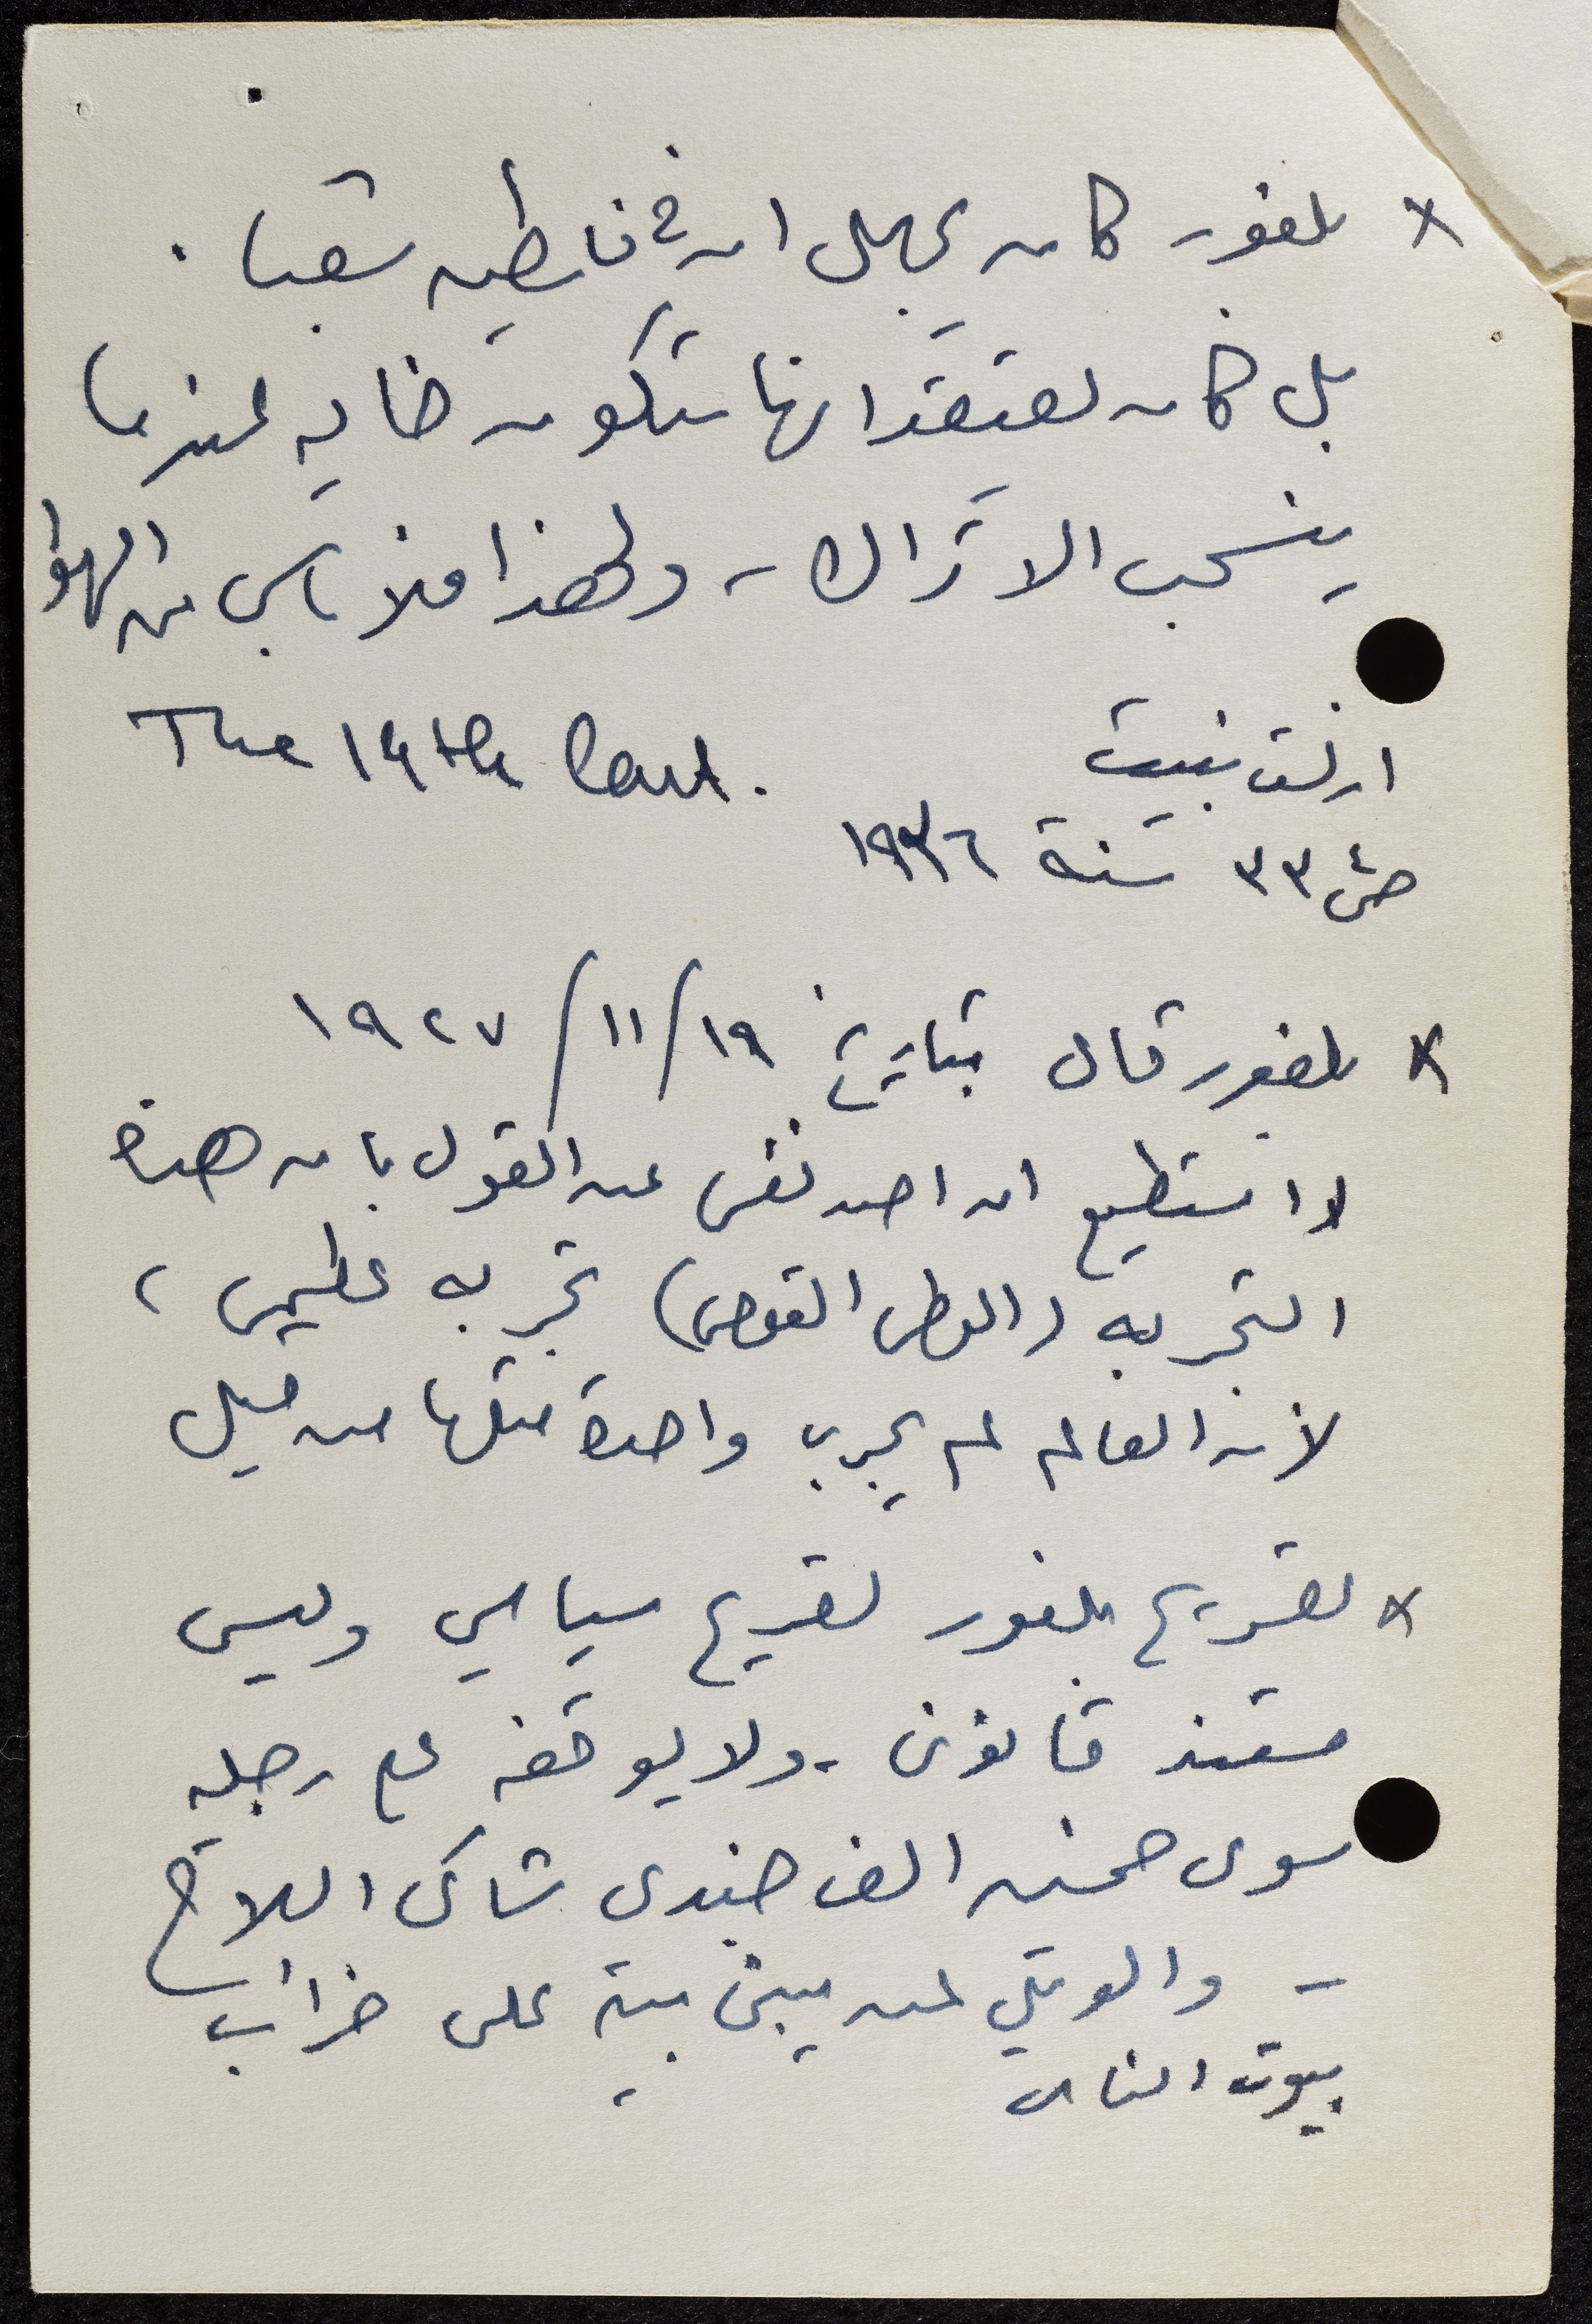 × بلفور كان يجهل ان في فلسطين شعبا .
بل كان يعتقد انها ستكون خاليه عندما
ينسحب الاتراك - ولهذا فلا بأس من الهواء
ارنست بنيت The 19th Cent.
ص ٣٣ سنة ١٩٣٦
× بلفور قال بتاريخ ١٩/١١/١٩٢٧
لا استطيع ان اصد نفسي عن القول بان هذه
التجربه (الوطن القومي) تجربه عظيمى ،
لأن العالم لم يجرب واحدة مثلها من قبل
× تصريح بلفور تصريح سياسي وليس
مستند قانوني - ولا يوقفه على رجليه
سوى خمسين الف جندي شاكي السلاح
- والويل لمن يبني بيته على خراب
بيوت الناس